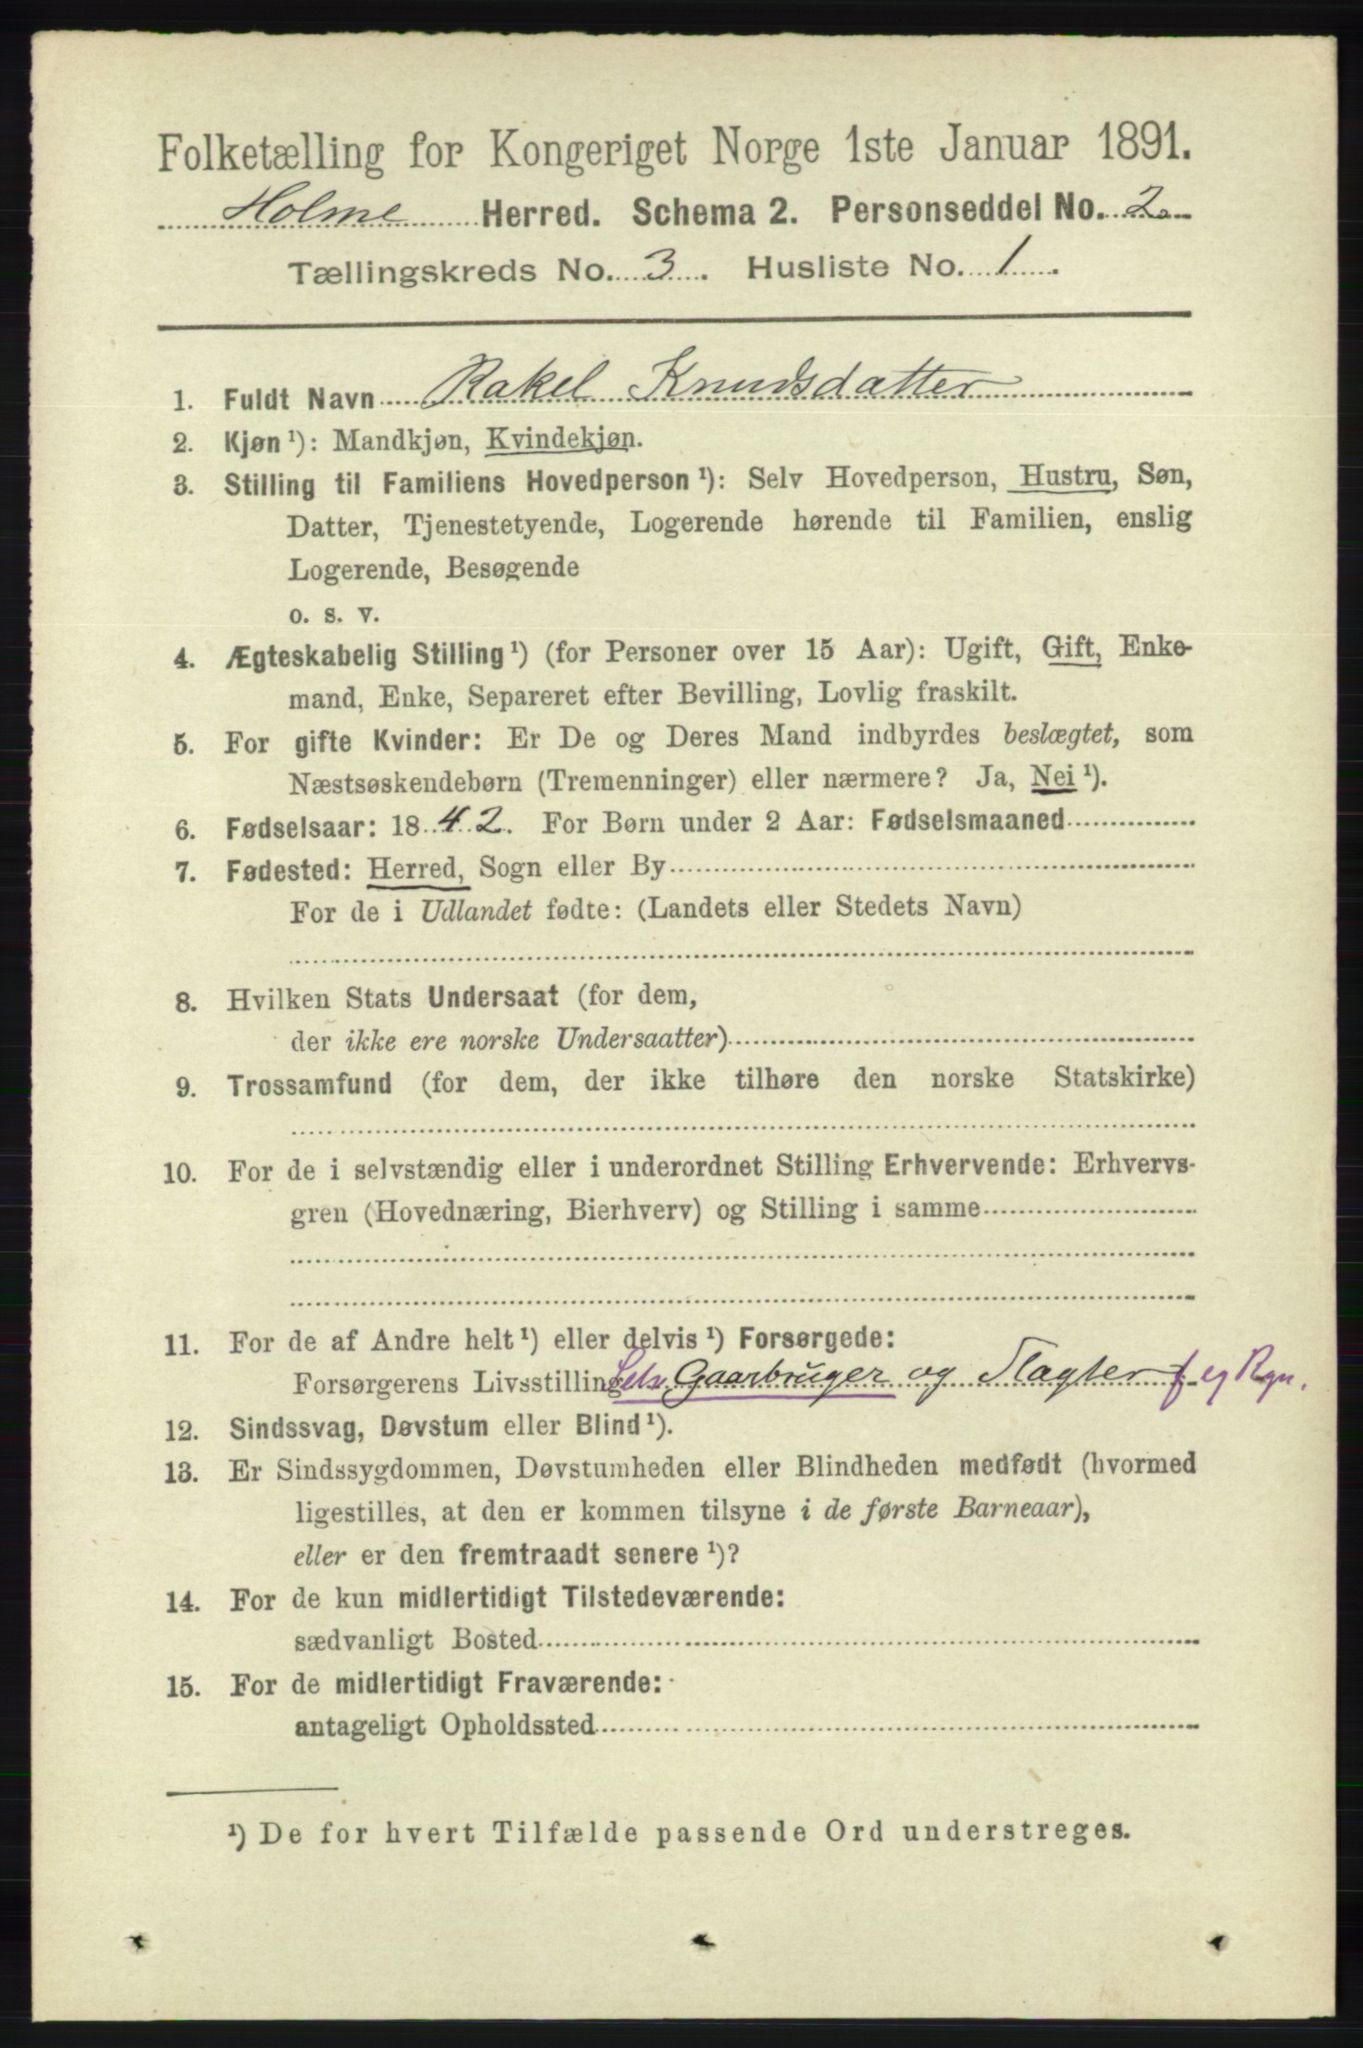 Folketælling for Kongeriget Norge 1ste Januar 1891.
Holme Herred. Schema 2. Personseddel No. 2
Tællingskreds No. 3. Husliste No. 1.
1. Fuldt Navn Rakel Knudsdatter
2. Kjøn ¹): Mandkjøn, Kvindekjøn.
3. Stilling til Familiens Hovedperson ¹): Selv Hovedperson, Hustru, Søn,
Datter, Tjenestetyende, Logerende hørende til Familien, enslig
Logerende, Besøgende
o. s. v.
4. Ægteskabelig Stilling ¹) (for Personer over 15 Aar): Ugift, Gift, Enke-
mand, Enke, Separeret efter Bevilling, Lovlig fraskilt.
5. For gifte Kvinder: Er De og Deres Mand indbyrdes beslægtet, som
Næstsøskendebørn (Tremenninger) eller nærmere? Ja, Nei ¹).
6. Fødselsaar: 1842. For Børn under 2 Aar: Fødselsmaaned
7. Fødested: Herred, Sogn eller By
For de i Udlandet fødte: (Landets eller Stedets Navn)
8. Hvilken Stats Undersaat (for dem,
der ikke ere norske Undersaatter)
9. Trossamfund (for dem, der ikke tilhøre den norske Statskirke)
10. For de i selvstændig eller i underordnet Stilling Erhvervende: Erhvervs-
gren (Hovednæring, Bierhverv) og Stilling i samme
11. For de af Andre helt ¹) eller delvis ¹) Forsørgede:
Forsørgerens Livsstilling Selv Gaarbruger og Slagter f eg Rgn.
12. Sindssvag, Døvstum eller Blind ¹).
13. Er Sindssygdommen, Døvstumheden eller Blindheden medfødt (hvormed
ligestilles, at den er kommen tilsyne i de første Barneaar),
eller er den fremtraadt senere ¹)?
14. For de kun midlertidigt Tilstedeværende:
sædvanligt Bosted
15. For de midlertidigt Fraværende:
antageligt Opholdssted
¹) De for hvert Tilfælde passende Ord understreges.